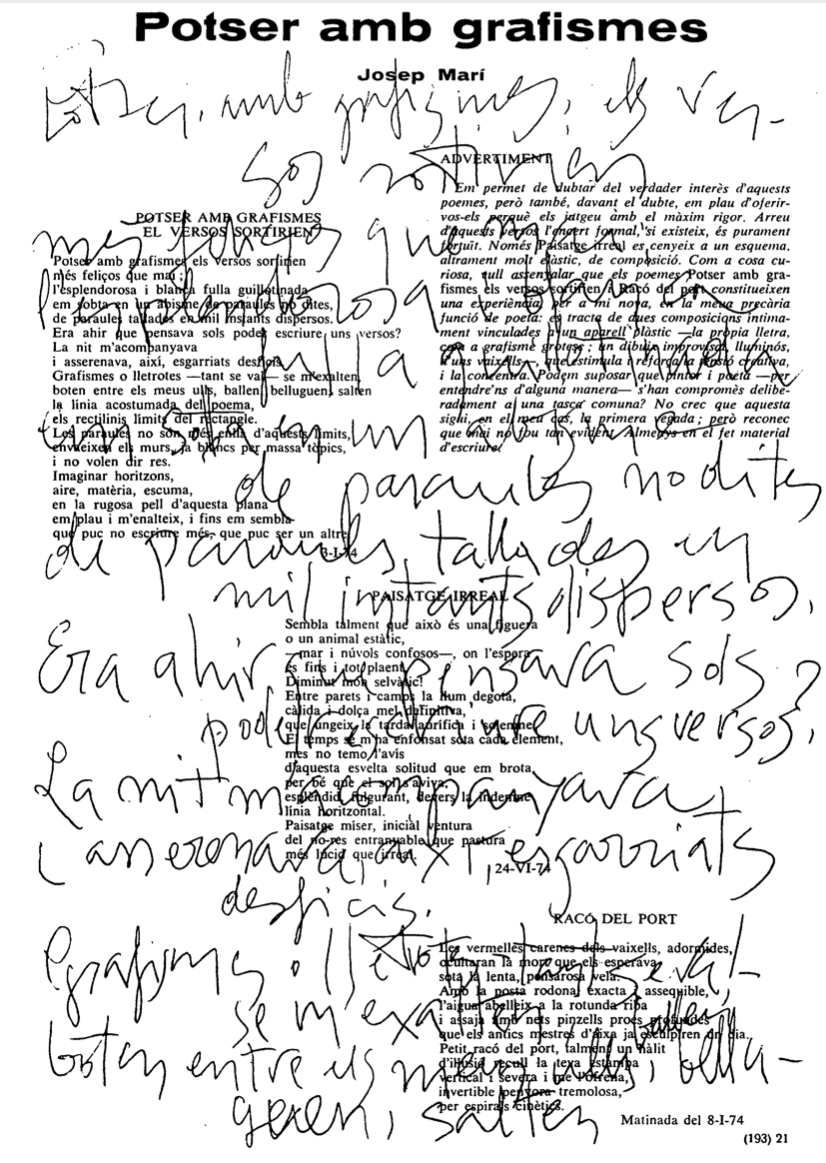 Potser amb grafismes
Josep Marí
ADVERTIMENT
Em permet de dubtar del verdader interès d'aquests
poemes, però també, davant el dubte, em plau d'oferir-
vos-els perquè els jutgeu amb el màxim rigor. Arreu
d'aquests versos l'encert formal, si existeix, és purament
fortuït. Només Paisatge irreal es cenyeix a un esquema,
altrament molt elàstic, de composició. Com a cosa cu-
riosa, vull assenyalar que els poemes Potser amb gra-
fismes els versos sortirien i Racó del port constitueixen
una experiència, per a mi nova, en la meua precària
funció de poeta: es tracta de dues composicions íntima-
ment vinculades a un aparell plàstic —la pròpia lletra,
com a grafisme grotesc; un dibuix improvisat, lluminós,
d'uns vaixells—, que estimula i reforça la tensió creativa,
i la concentra. Podem suposar que pintor i poeta —per
entendre'ns d'alguna manera— s'han compromès delibe-
radament a una tasca comuna? No crec que aquesta
sigui, en el meu cas, la primera vegada; però reconec
que mai no fou tan evident. Almenys en el fet material
d'escriure.
POTSER AMB GRAFISMES
EL VERSOS SORTIRIEN
Potser amb grafismes els versos sortirien
més feliços que mai;
l'esplendorosa i blanca fulla guillotinada
em sobta en un abisme de paraules no dites,
de paraules tallades en mil instants dispersos.
Era ahir que pensava sols poder escriure uns versos?
La nit m'acompanyava
i asserenava, així, esgarriats desficis.
Grafismes o lletrotes —tant se val— se m'exalten,
boten entre els meus ulls, ballen, belluguen, salten
la línia acostumada del poema,
els rectilinis límits del rectangle.
Les paraules no són més enllà d'aquests límits,
envileixen els murs, ja blancs per massa tòpics,
i no volen dir res.
Imaginar horitzons,
aire, matèria, escuma,
en la rugosa pell d'aquesta plana
em plau i m'enalteix, i fins em sembla
que puc no escriure més, que puc ser un altre.
3-I-74
PAISATGE IRREAL
Sembla talment que això és una figuera
o un animal estàtic,
—mar i núvols confosos—, on l'espera
és fins i tot plaent.
Diminut món selvàtic!
Entre parets i camps la llum degota,
càlida i dolça mel definitiva,
que ungeix la tarda aurífica i solemne.
El temps se m'ha enfonsat sota cada element,
mes no temo l'avís
d'aquesta esvelta solitud que em brota,
per bé que el sol s'aviva,
esplèndid, fulgurant, devers la indemne
línia horitzontal.
Paisatge míser, inicial ventura
del no-res entranyable que pastura
més lúcid que irreal.
24-VI-74
RACÓ DEL PORT
Les vermelles carenes dels vaixells, adormides,
ocultaran la mort que els esperava
sota la lenta, pensarosa vela.
Amb la posta rodona, exacta i assequible,
l'aigua abelleix a la rotunda riba
i assaja amb nets pinzells procs profundes
que els antics mestres d'aixa ja esculpiren un dia.
Petit racó del port, talment un hàlit
d'il·lusió recull la teva estampa
vertical i severa i
invertible penyora tremolosa,
per espirals cinètics.
Matinada del 8-I-74
(193) 21
Potser, amb grafismes, els ver-
sos sortirien
més feliços que mai;
l'esplendorosa i blanca
fulla guillotinada
em sobta en un abisme
de paraules no dites
de paraules tallades en
mil instants dispersos.
Era ahir que pensava sols
poder escriure uns versos?
La nit m'acompanyava
i asserenava, així, esgarriats
desficis.
Grafismes o lletrotes —tant se val—
se m'exalten, ballen,
boten entre els meus ulls, bellu-
guen, salten